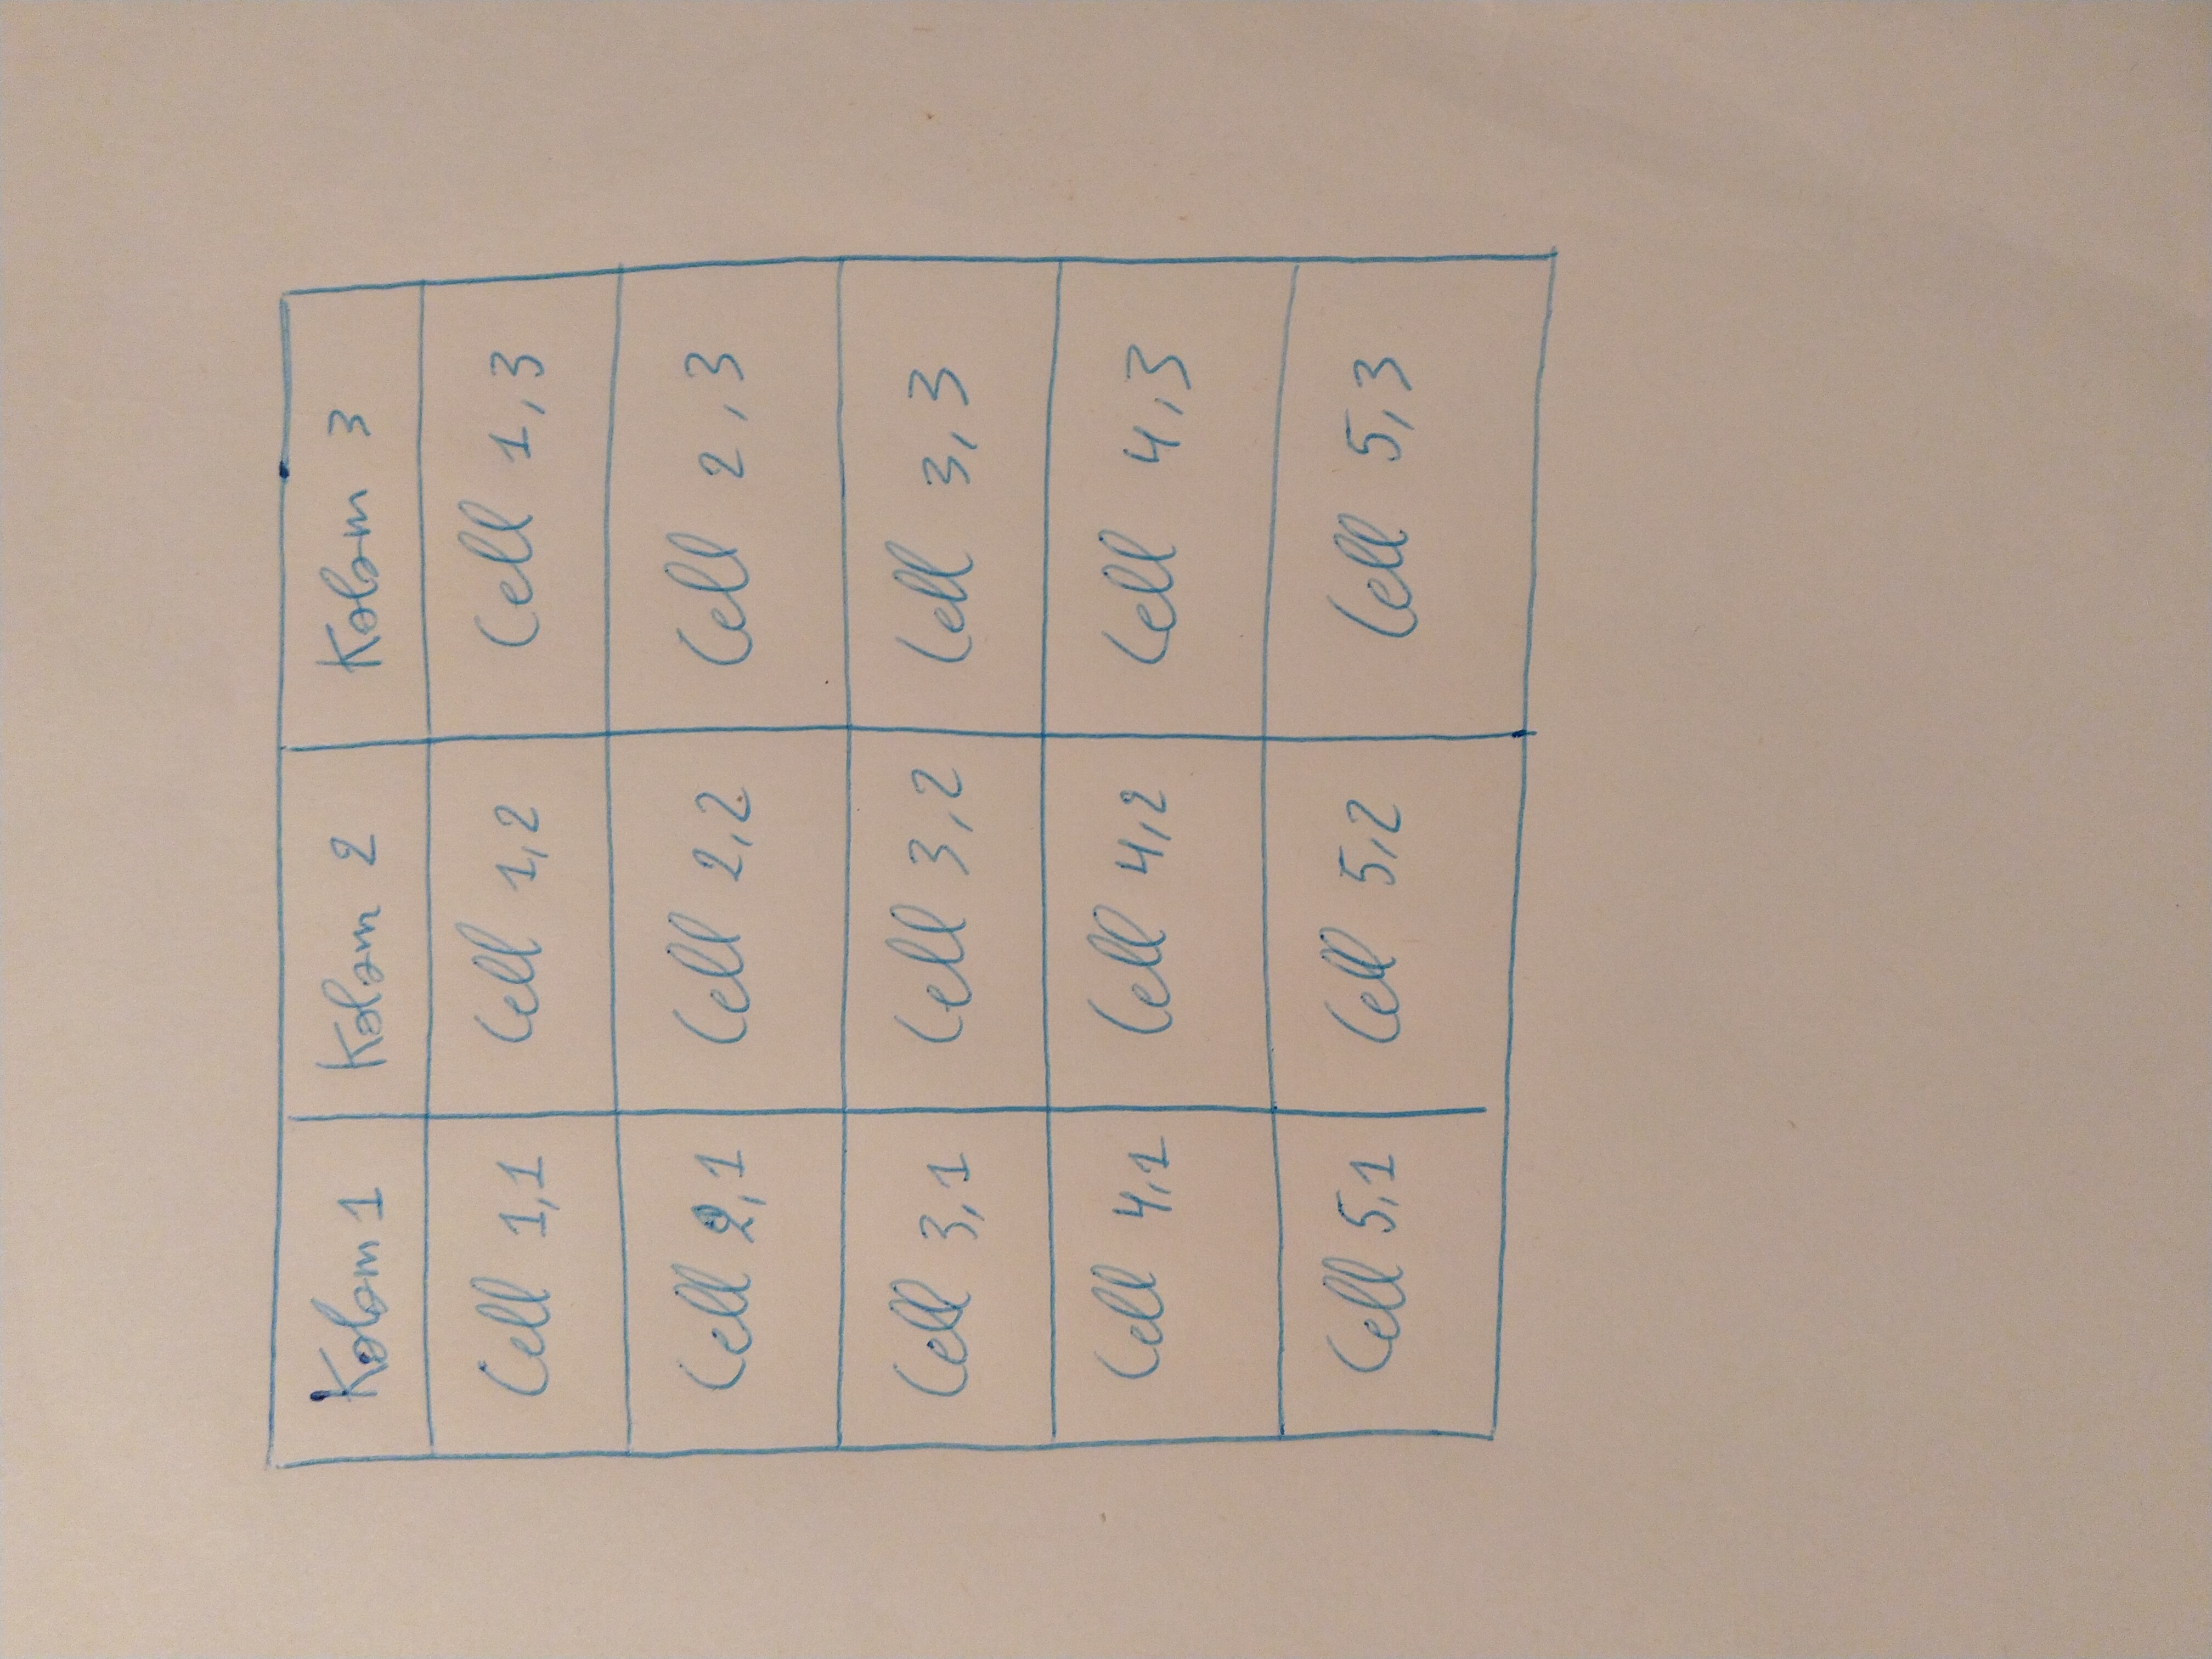 Kolom 1 Kolom 2 Kolom 3
Cell 1,1 Cell 1,2 Cell 1,3
Cell 2,1 Cell 2,2 Cell 2,3
Cell 3,1 Cell 3,2 Cell 3,3
Cell 4,1 Cell 4,2 Cell 4,3
Cell 5,1 Cell 5,2 Cell 5,3